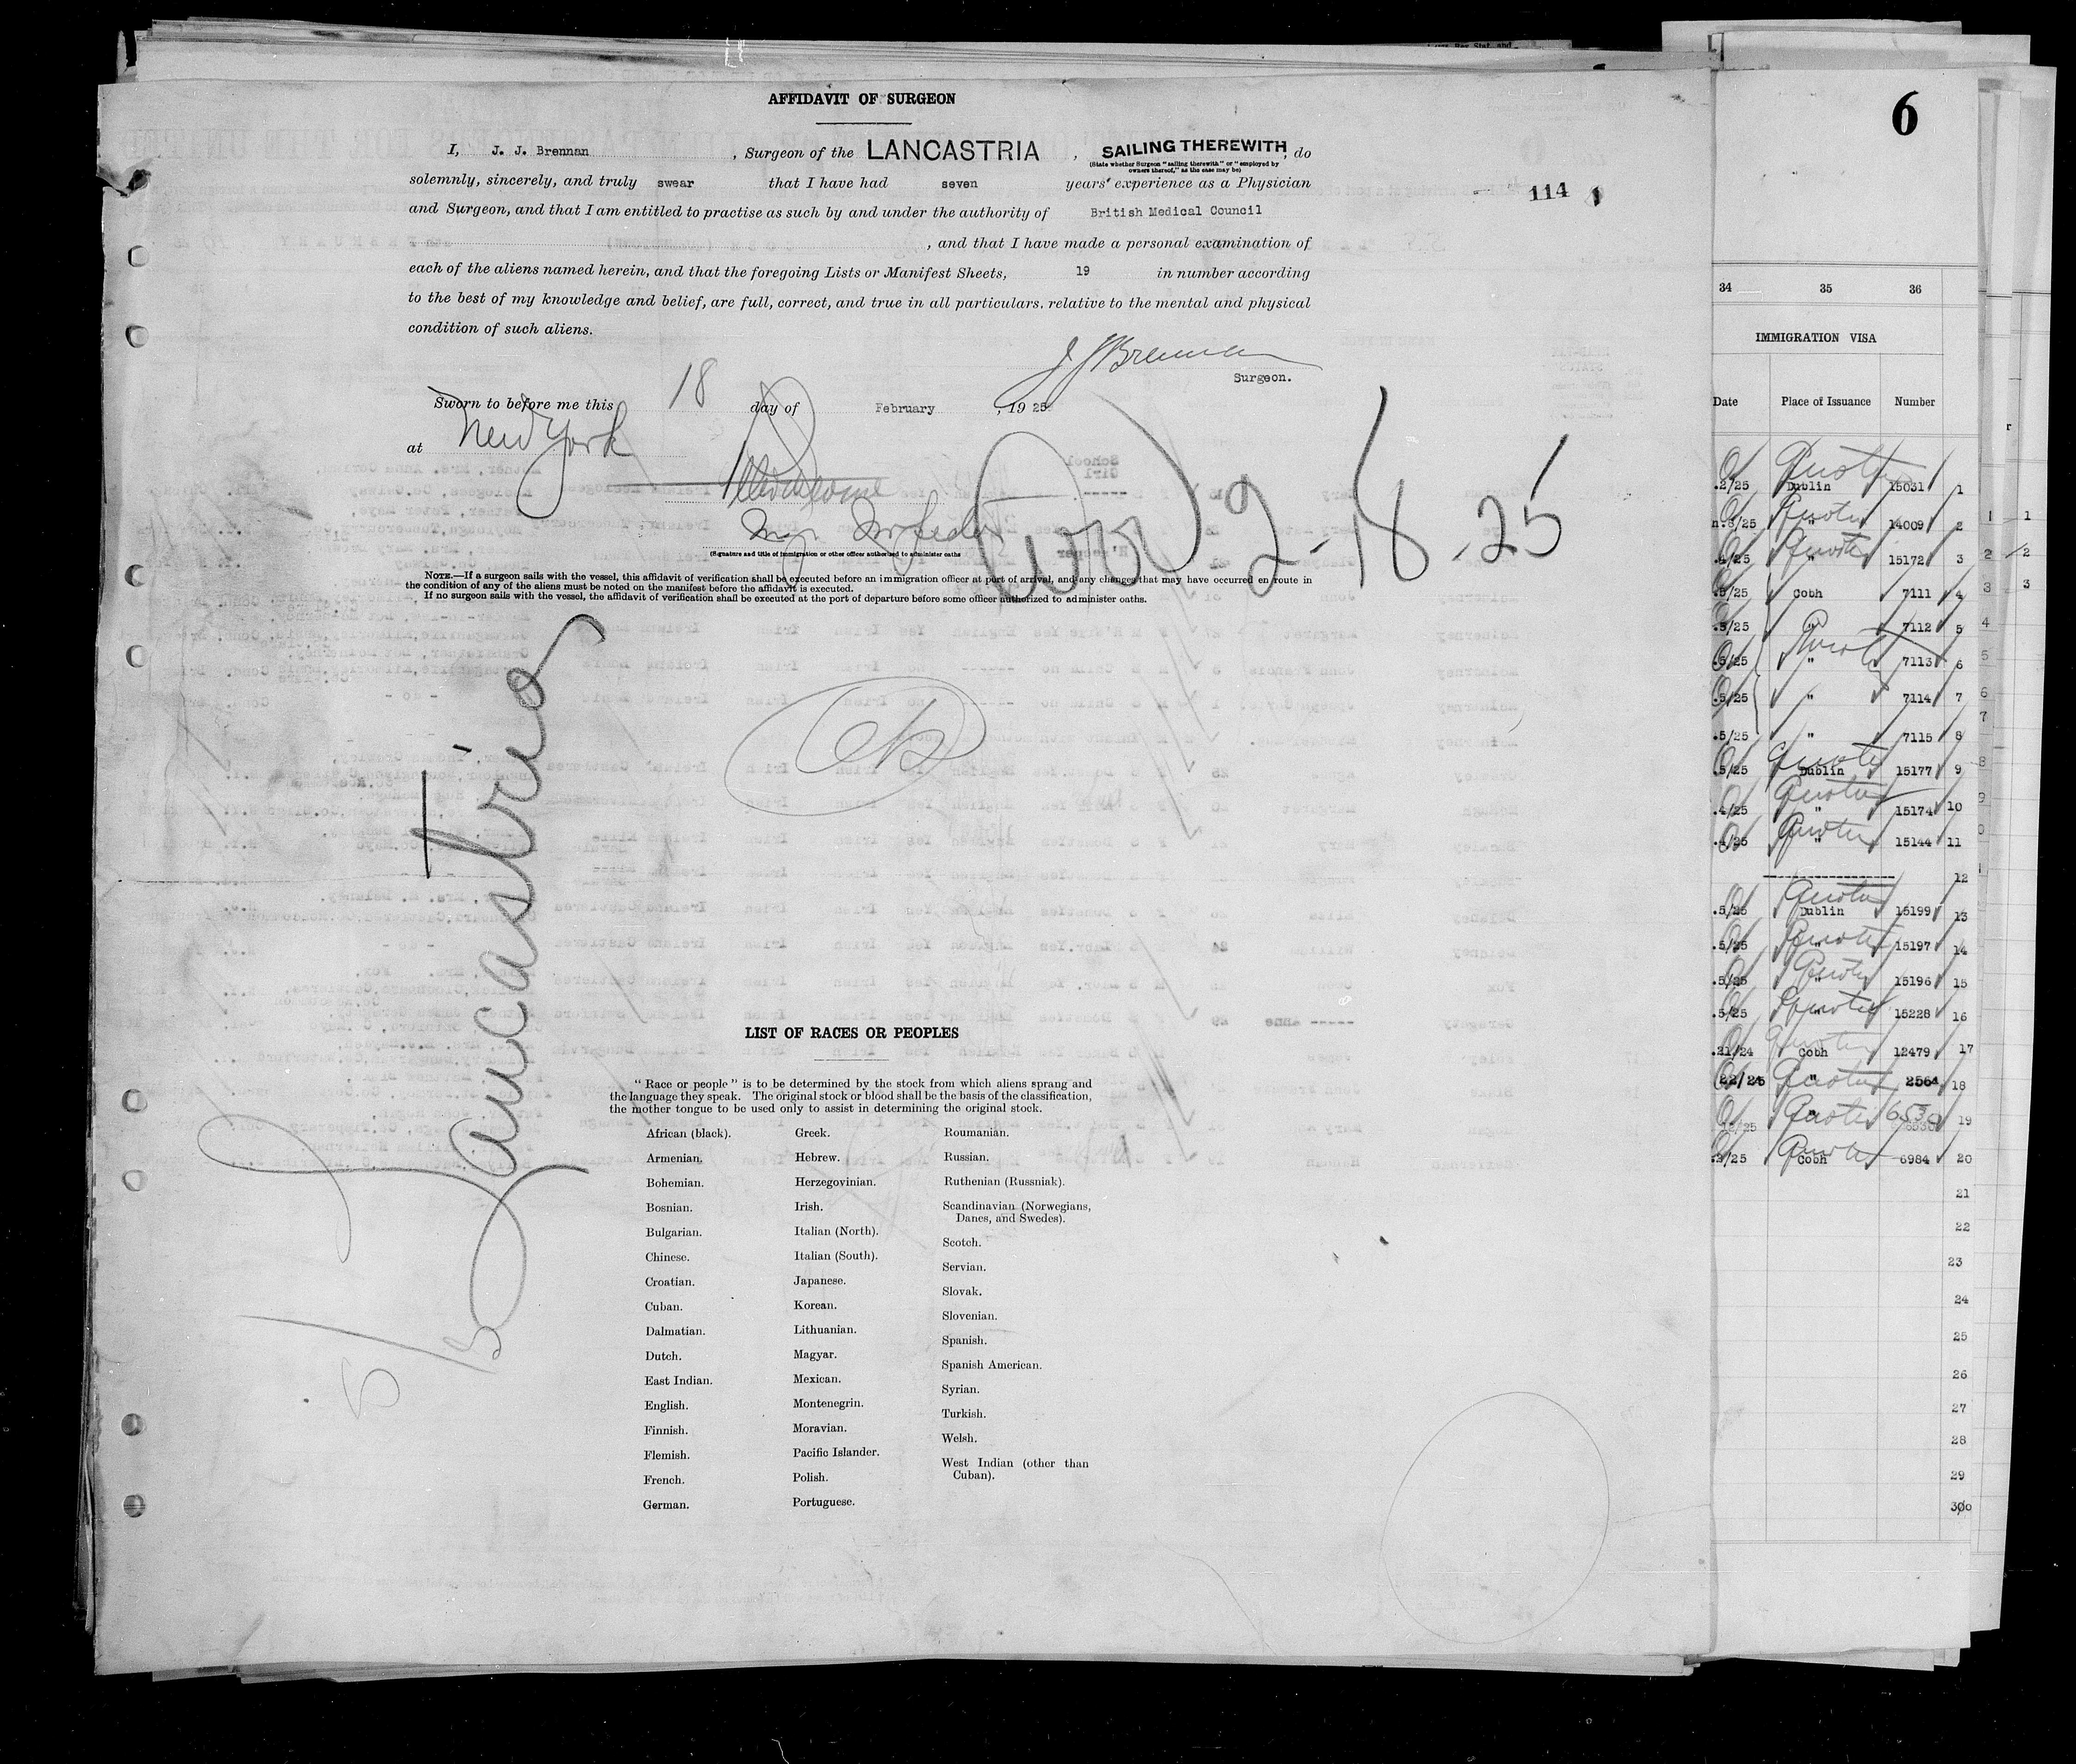 AFFIDAVIT OF SURGEON
I, J. J. Brennan , Surgeon of the LANCASTRIA , SAILING THEREWITH, do
(State whether Surgeon "sailing therewith" or "employed by
owners thereof," as the case may be)
solemnly, sincerely, and truly swear that I have had seven years' experience as a Physician
and Surgeon, and that I am entitled to practise as such by and under the authority of British Medical Council
, and that I have made a personal examination of
each of the aliens named herein, and that the foregoing Lists or Manifest Sheets, 19 in number according
to the best of my knowledge and belief, are full, correct, and true in all particulars, relative to the mental and physical
condition of such aliens.
J J Brennan
Surgeon.
Sworn to before me this 18 day of February , 19 25
at New York
(Signature and title of immigration or other officer authorised to administer oaths
2-18-25
NOTE.—If a surgeon sails with the vessel, this affidavit of verification shall be executed before an immigration officer at port of arrival, and any changes that may have occurred en route in
the condition of any of the aliens must be noted on the manifest before the affidavit is executed.
If no surgeon sails with the vessel, the affidavit of verification shall be executed at the port of departure before some officer authorized to administer oaths.
Lancastria
ok
LIST OF RACES OR PEOPLES
"Race or people" is to be determined by the stock from which aliens sprang and
the language they speak. The original stock or blood shall be the basis of the classification,
the mother tongue to be used only to assist in determining the original stock.
African (black).
Armenian.
Bohemian.
Bosnian.
Bulgarian.
Chinese.
Croatian.
Cuban.
Dalmatian.
Dutch.
East Indian.
English.
Finnish.
Flemish.
French.
German.
Greek.
Hebrew.
Herzegovinian.
Irish.
Italian (North).
Italian (South).
Japanese.
Korean.
Lithuanian.
Magyar.
Mexican.
Montenegrin.
Moravian.
Pacific Islander.
Polish.
Portuguese.
Roumanian.
Russian.
Ruthenian (Russniak).
Scandinavian (Norwegians,
Danes, and Swedes).
Scotch.
Servian.
Slovak.
Slovenian.
Spanish.
Spanish American.
Syrian.
Turkish.
Welsh.
West Indian (other than
Cuban).
114
6
34 35 36
IMMIGRATION VISA
Date Place of Issuance Number
.2/25 Dublin 15031 1
n.8/25 " 14009 2
.4/25 " 15172 3
.5/25 Cobh 7111 4
.5/25 " 7112 5
.5/25 " 7113 6
.5/25 " 7114 7
.5/25 " 7115 8
.5/25 Dublin 15177 9
.4/25 " 15174 10
.4/25 " 15144 11
12
.5/25 Dublin 15199 13
.5/25 " 15197 14
.5/25 " 15196 15
.5/25 " 15228 16
.21/24 Cobh 12479 17
22/25 " 2564 18
" 6530 19
.3/25 Cobh 6984 20
21
22
23
24
25
26
27
28
29
30